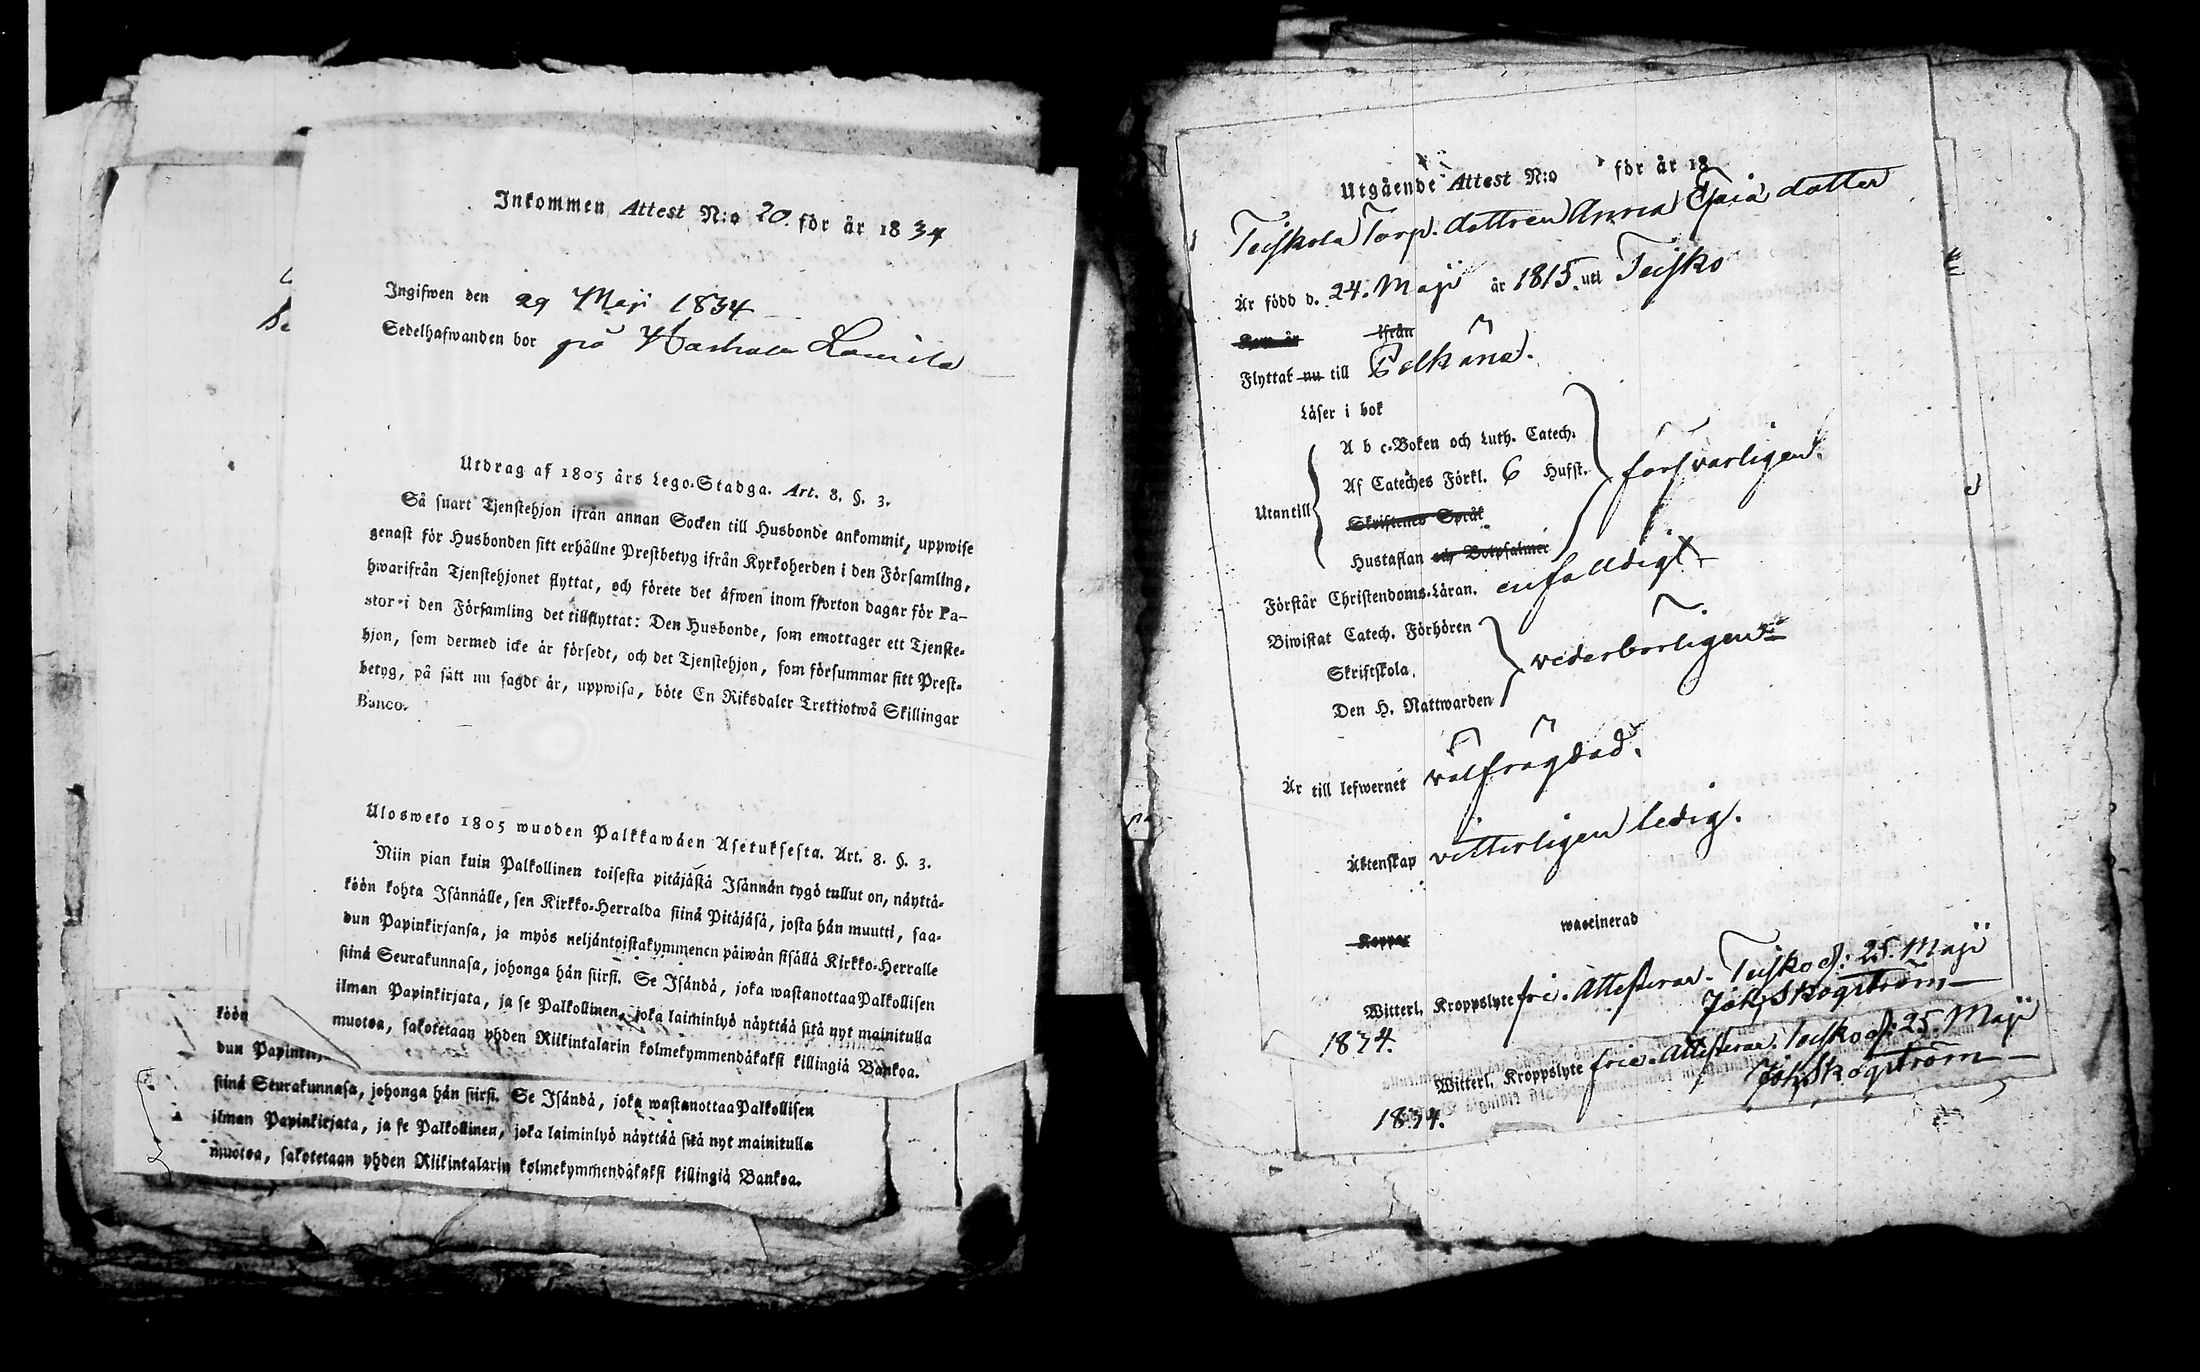 Inkommen Attest N:o 20. för år 1834
Ingifwen den 29 Maji 1834
Sedelhafwanden bor på
Utdrag af 1805 års Lego-Stadga. Art. 8. §. 3.
Så snart Tjenstehjon ifrån annan Socken till Husbonde ankommit, uppwise
genast för Husbonden sitt erhållne Prestbetyg ifrån Kyrkoherden i den Församling,
hwarifrån Tjenstehjonet flyttat, och förete det äfwen inom fjorton dagar för Pa-
stor i den Församling det tillflyttat: Den Husbonde, som emottager ett Tjenste-
hjon, som dermed icke är försedt, och det Tjenstehjon, som försummar sitt Prest-
betyg, på sätt nu sagdt är, uppwisa, böte En Riksdaler Trettiotwå Skillingar
Banco.
Ulosweto 1805 wuoden Palkkawäen Asetuksesta. Art. 8. §. 3.
Niin pian kuin Palkollinen toisesta pitäjästä Isännän tygö tullut on, näyttä-
köön kohta Isännälle, sen Kirkko-Herralda siinä Pitäjäsä, josta hän muutti, saa-
dun Papinkirjansa, ja myös neljäntoistakymmenen päiwän sisällä Kirkko-Herralle
siinä Seurakunnasa, johonga hän siirsi. Se Isändä, joka wastanottaa Palkollisen
ilman Papinkirjata, ja se Palkollinen, joka laiminlyö näyttää sitä nyt mainitulla
muotoa, sakotetaan yhden Riikintalarin kolmekymmendäkaksi killingiä Bankoa.
köön
dun Papinki
siinä Seurakunnasa, johonga hän siirsi. Se Isändä, joka wastanottaa Palkollisen
ilman Papinkirjata, ja se Palkollinen, joka laiminlyö näyttää sitä nyt mainitulla
muotoa, sakotetaan yhden Riikintalarin kolmekymmendäkaksi killingiä Bankoa.
Utgående Attest N:o för år 18
Teiskola Torp. dottren Anna Caisa dotter
Är född d. 24. Maji år 1815. uti Teisko
Kom år ifrån
Flyttat nu till Pelkäne.
Läser i bok
A b c-Boken och Luth. Catech.
Af Cateches Förkl. 6 Hufst. försvarligen.
Utantill
Skriftenes Språk
Hustaflan och Botpsalmer
Förstår Christendoms-Läran. enfaldigt
Biwistat Catech. Förhören
Skriftskola. wederbörligen
Den H. Nattwarden
Är till lefwernet välfrägdad.
Äktenskap vitterligen ledig.
Koppor waccinerad
Witterl. Kroppslyte fri. Attesterar. Teisko d: 25. Maji
1834. Joh. Skogström
Witterl. Kroppslyte frie. Attesterar. Teisko d: 25. Maji
1834. Joh. Skogström